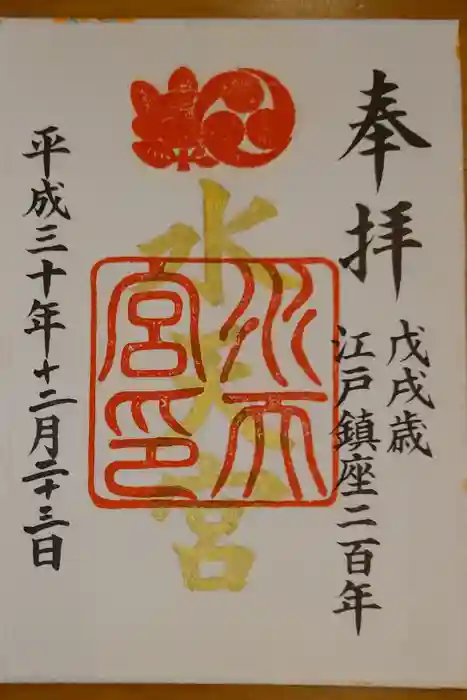 奉拝
戊戌歳
江戸鎮座二百年
水天宮
水天宮印
平成三十年十二月二十三日